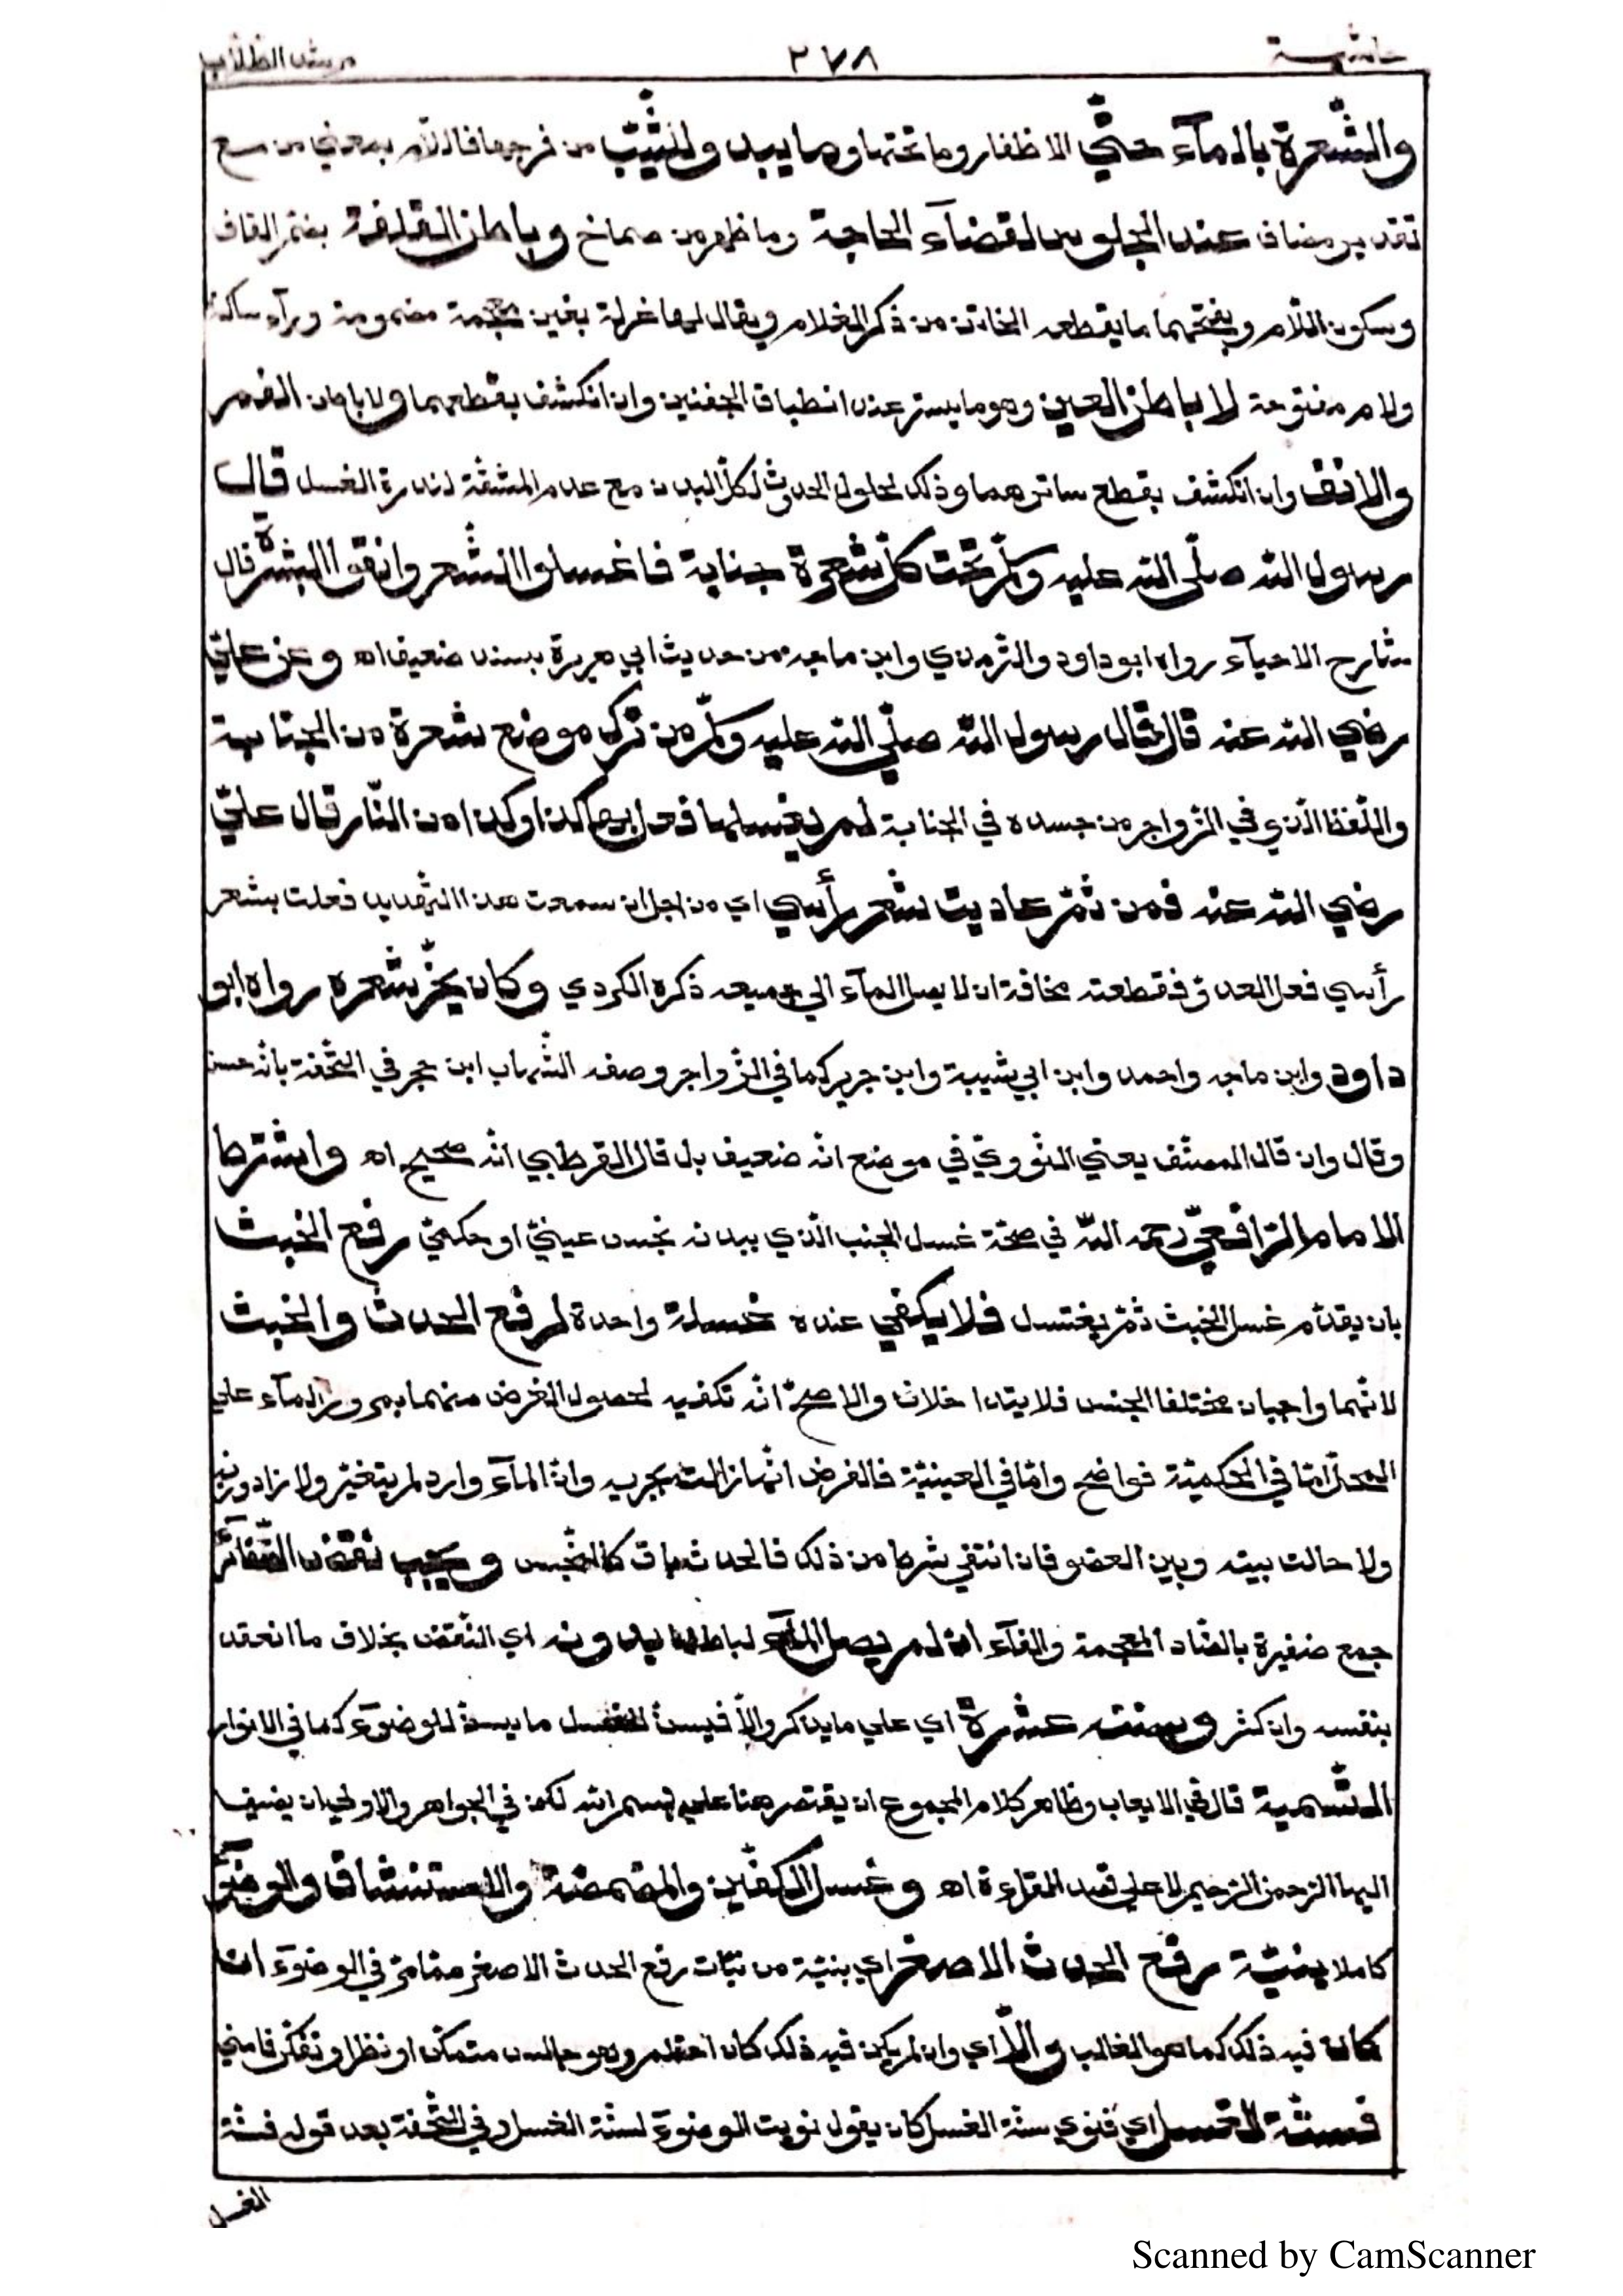 حاشية ٢٧٨ مرشد الطلاب
والشّعرة بالمآء حتّي الاظفار وما تحتها وما يبد ولثيّب من فرجها فاللّام بمعني من مع
تقدير مضاف عند الجلوس لقضآء الحاجة وما ظهر من صماخ وباطن القلفة بضمّ القاف
وسكون اللّام وبفتحهما ما يقطعه الخاتن من ذكر الغلام ويقال لها غرلة بغين معجمة مضمومة ورآء ساكنة
ولام مفتوحة لا باطن العين وهو ما يستر عند انطباق الجفنين وان انكشف بقطعهما ولا باطن الفم
والانف وان انكشف بقطع ساترهما وذلك لحلول الحدث لكلّ البدن مع عدم المشقّة لندرة الغسل قال
رسول الله صلّي الله عليه وسلّم تحت كلّ شعرة جنابة فاغسلوا الشّعر وانقوا البشرة قال
شارح الاحيآء رواه ابوداود والتّرمذي وابن ماجه من حديث ابي هريرة بسند ضعيف اه وعن عليّ
رضي الله عنه قال قال رسول الله صلّي الله عليه وسلّم من ترك موضع شعرة من الجنابة
واللّفظ الّذي في الزّواجر من جسده في الجنابة لم يغسلها فعل بها كذا وكذا من النّار قال عليّ
رضي الله عنه فمن ثمّ عاديت شعر رأسي اي من اجل ان سمعت هذا التّهديد فعلت بشعر
رأسي فعل العدوّ فقطعته مخافة ان لا يصل المآء الي جميعه ذكره الكردي وكان يجزّ شعره رواه ابو
داود وابن ماجه واحمد وابن ابي شيبة وابن جرير كما في الزّواجر وصفه الشّهاب ابن حجر في التّحفة بانّه حسن
وقال وان قال المصنّف يعني النّوويّ في موضع انّه ضعيف بل قال القرطبي انّه صحيح اه واشترط
الامام الرّافعيّ رحمه الله في صحّة غسل الجنب الّذي ببدنه نجس عينيّ او حكميّ رفع الخبث
بان يقدّم غسل الخبث ثمّ يغتسل فلا يكفي عنده غسلة واحدة لرفع الحدث والخبث
لانّهما واجبان مختلفا الجنس فلا يتداخلان والاصحّ انّه تكفيه لحصول الغرض منهما بمرور المآء علي
المحلّ امّا في الحكميّة فواضح وامّا في العينيّة فالفرض انّها زالت بجريه وانّ المآء وارد لم يتغيّر ولا زاد وزنه
ولا حالت بينه وبين العضو فان انتفي شرط من ذلك فالحدث باق كالنّجس ويجب نقض الضّفائر
جمع ضفيرة بالضاد المعجمة والفآء ان لم يصل المآء لباطنها بدونه اي النّقض بخلاف ما انعقد
بنفسه وان كثر وسننه عشرة اي علي ما يذكر والّا فيسنّ للغسل ما يسنّ للوضوء كما في الانوار
التّسمية قال في الايعاب وظاهر كلام المجموع ان يقتصر هنا علي بسم الله لكن في الجواهر والاولي ان يضيف
اليها الرّحمن الرّحيم لا علي قصد القراءة اه وغسل الكفّين والمضمضة والاستنشاق والوضوء
كاملا بنيّة رفع الحدث الاصغر اي بنيّة من نيّات رفع الحدث الاصغر ممّا مرّ في الوضوء ان
كان فيه ذلك كما هو الغالب والّا اي وان لم يكن فيه ذلك كان احتلم وهو جالس متمكّن او نظر او تفكّر فامني
فسنّة الغسل اي فينوي سنّة الغسل كان يقول نويت الوضوء لسنّة الغسل وفي التّحفة بعد قوله فسنّة
الغسل
Scanned by CamScanner